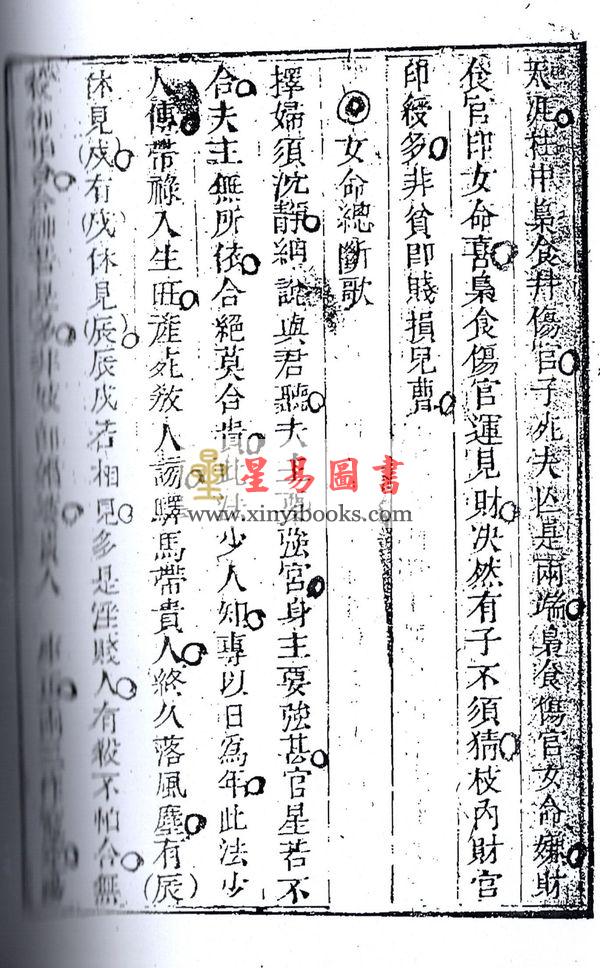 在甲梟食并傷官子死夫凶是兩端梟食傷官女命嫌財
食官印女命喜梟食傷官運見財决然有子不須猜枝內財官
印綬多非貧即賤損兒曹
女命總斷歌
擇婦須沈靜細說與君聽夫主要強宮身主要強甚官星若不
合夫主無所依合絕莫合貴此法少人知專以日為年此法少
人傳帶祿入生旺產死教人謗驛馬帶貴人終久落風塵有(辰)
休見(戌)有戌休見(辰)辰戌若相見多是淫賤人有殺不怕合無
星易圖書
www.xinyibooks.com